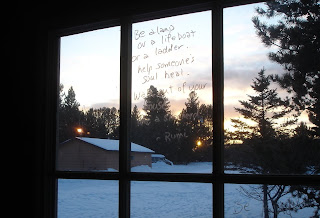 Be a lamp
or a lifeboat
or a ladder.
help someone's
soul heal.
Walk out of your